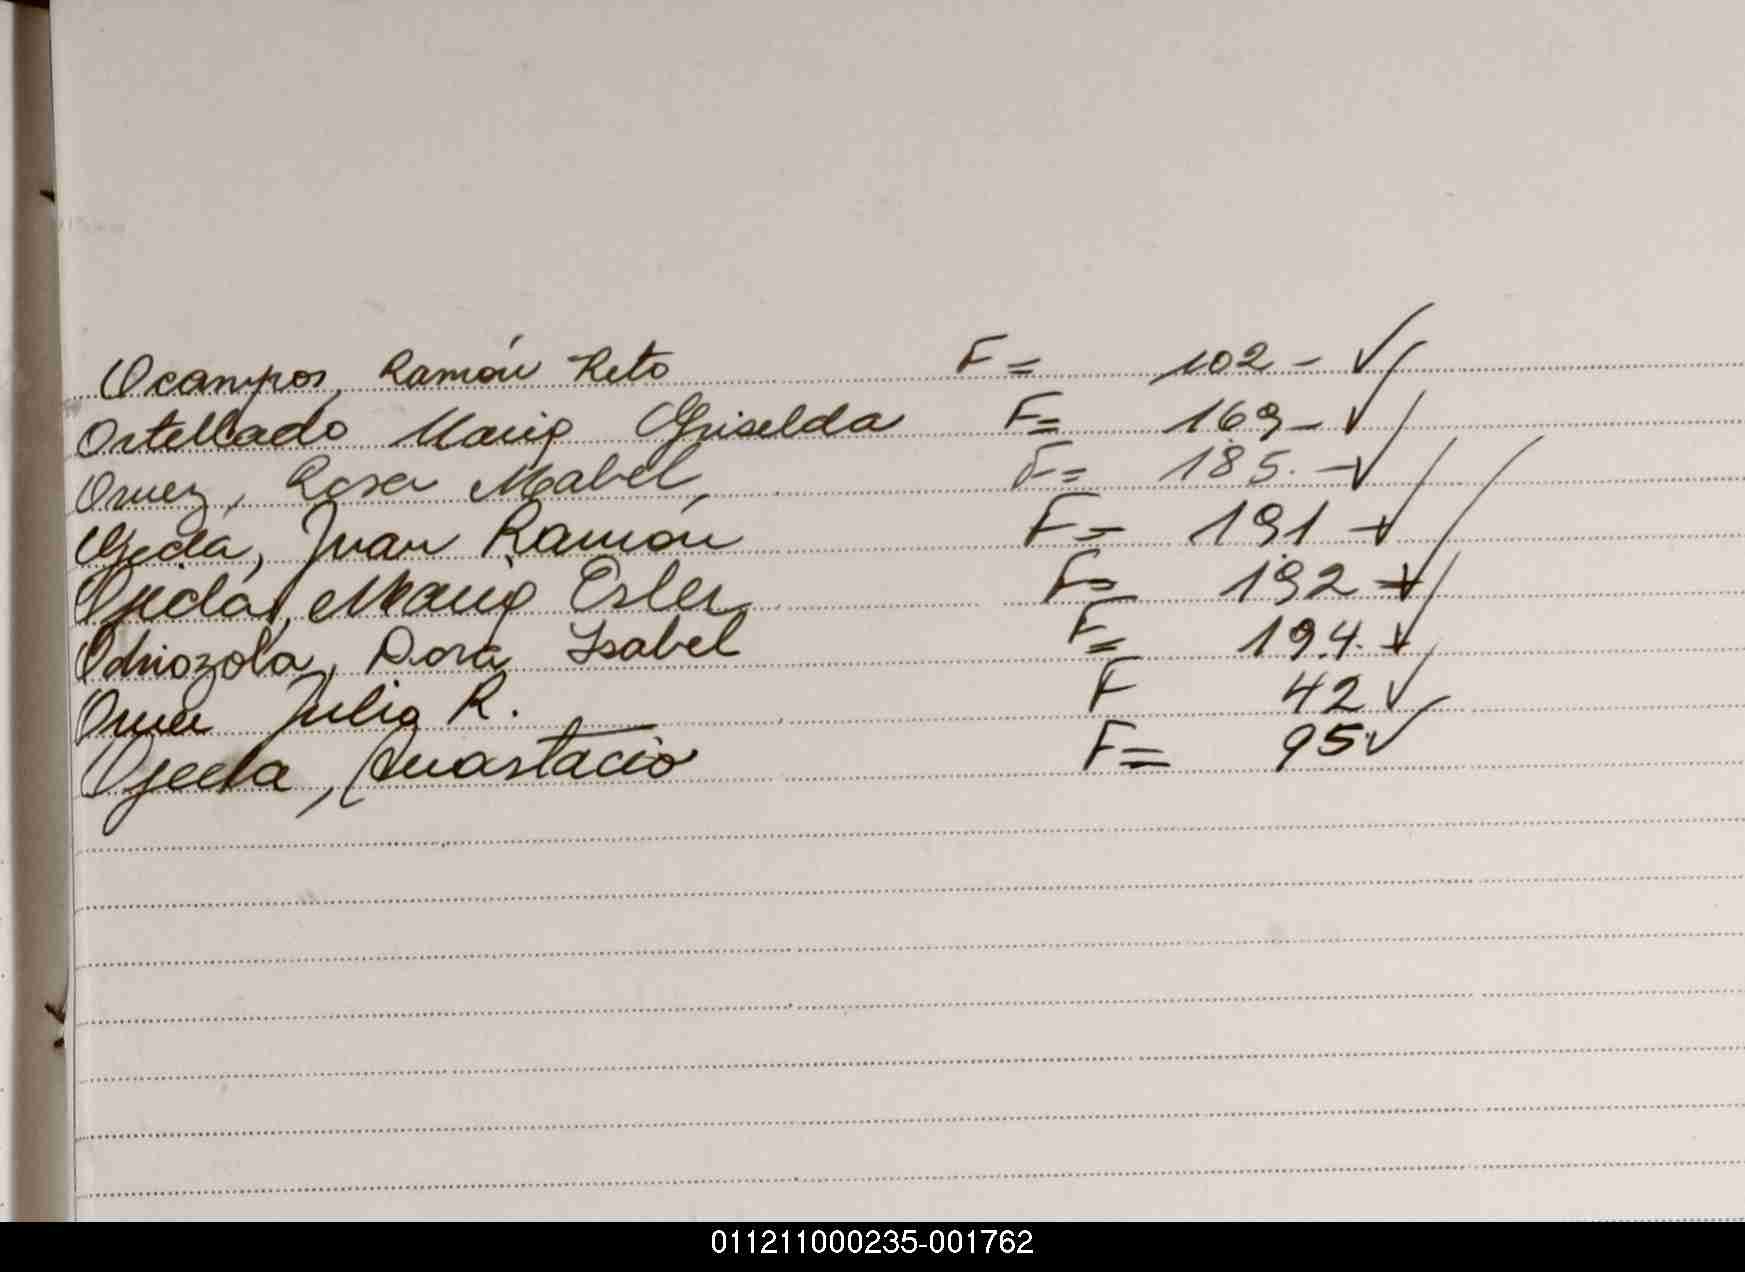 Ocampos, Ramón Reto F= 102 - ✓
Ortellado Maria Griselda F= 169 - ✓
Oruez, Rosa Mabel, F= 185. - ✓
Ojeda, Juan Ramón F= 191 - ✓
Ojeda, Maria Ester F= 192 - ✓
Odriozola, Dora Isabel F= 194. - ✓
Julia R. F 42 ✓
Ojeda, Anastacio F= 95. ✓
011211000235-001762